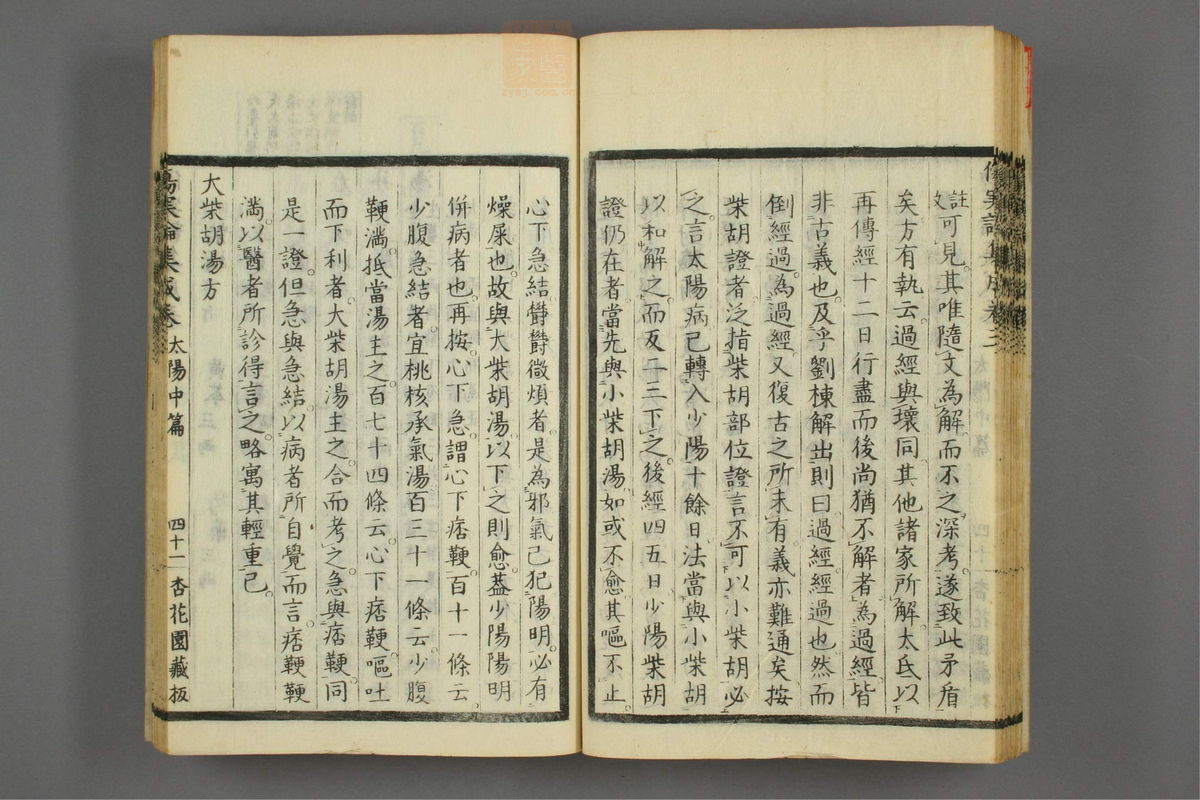 傷寒論集成卷三
註文可見其唯隨文為解而不之深考遂致此矛盾
矣方有執云過經與壞同其他諸家所解太氐以
再傳經十二日行盡而後尚猶不解者為過經皆
非古義也及乎劉棟解出則曰過經經過也然而
倒經過為過經又復古之所未有義亦難通矣按
柴胡證者泛指柴胡部位證言不可以小柴胡必
之言太陽病已轉入少陽十餘日法當與小柴胡
以和解之而反二三下之後經四五日少陽柴胡
證仍在者當先與小柴胡湯如或不愈其嘔不止
心下急結鬱鬱微煩者是為邪氣已犯陽明必有
燥屎也故與大柴胡湯以下之則愈蓋少陽陽明
併病者也再按心下急謂心下痞鞕百十一條云
少腹急結者宜桃核承氣湯百三十一條云少腹
鞕滿抵當湯主之百七十四條云心下痞鞕嘔吐
而下利者大柴胡湯主之合而考之急與痞鞕同
是一證但急與急結以病者所自覺而言痞鞕鞕
滿以醫者所診得言之略寓其輕重已
大柴胡湯方
傷寒論集成卷 太陽中篇 四十一 杏花園藏板